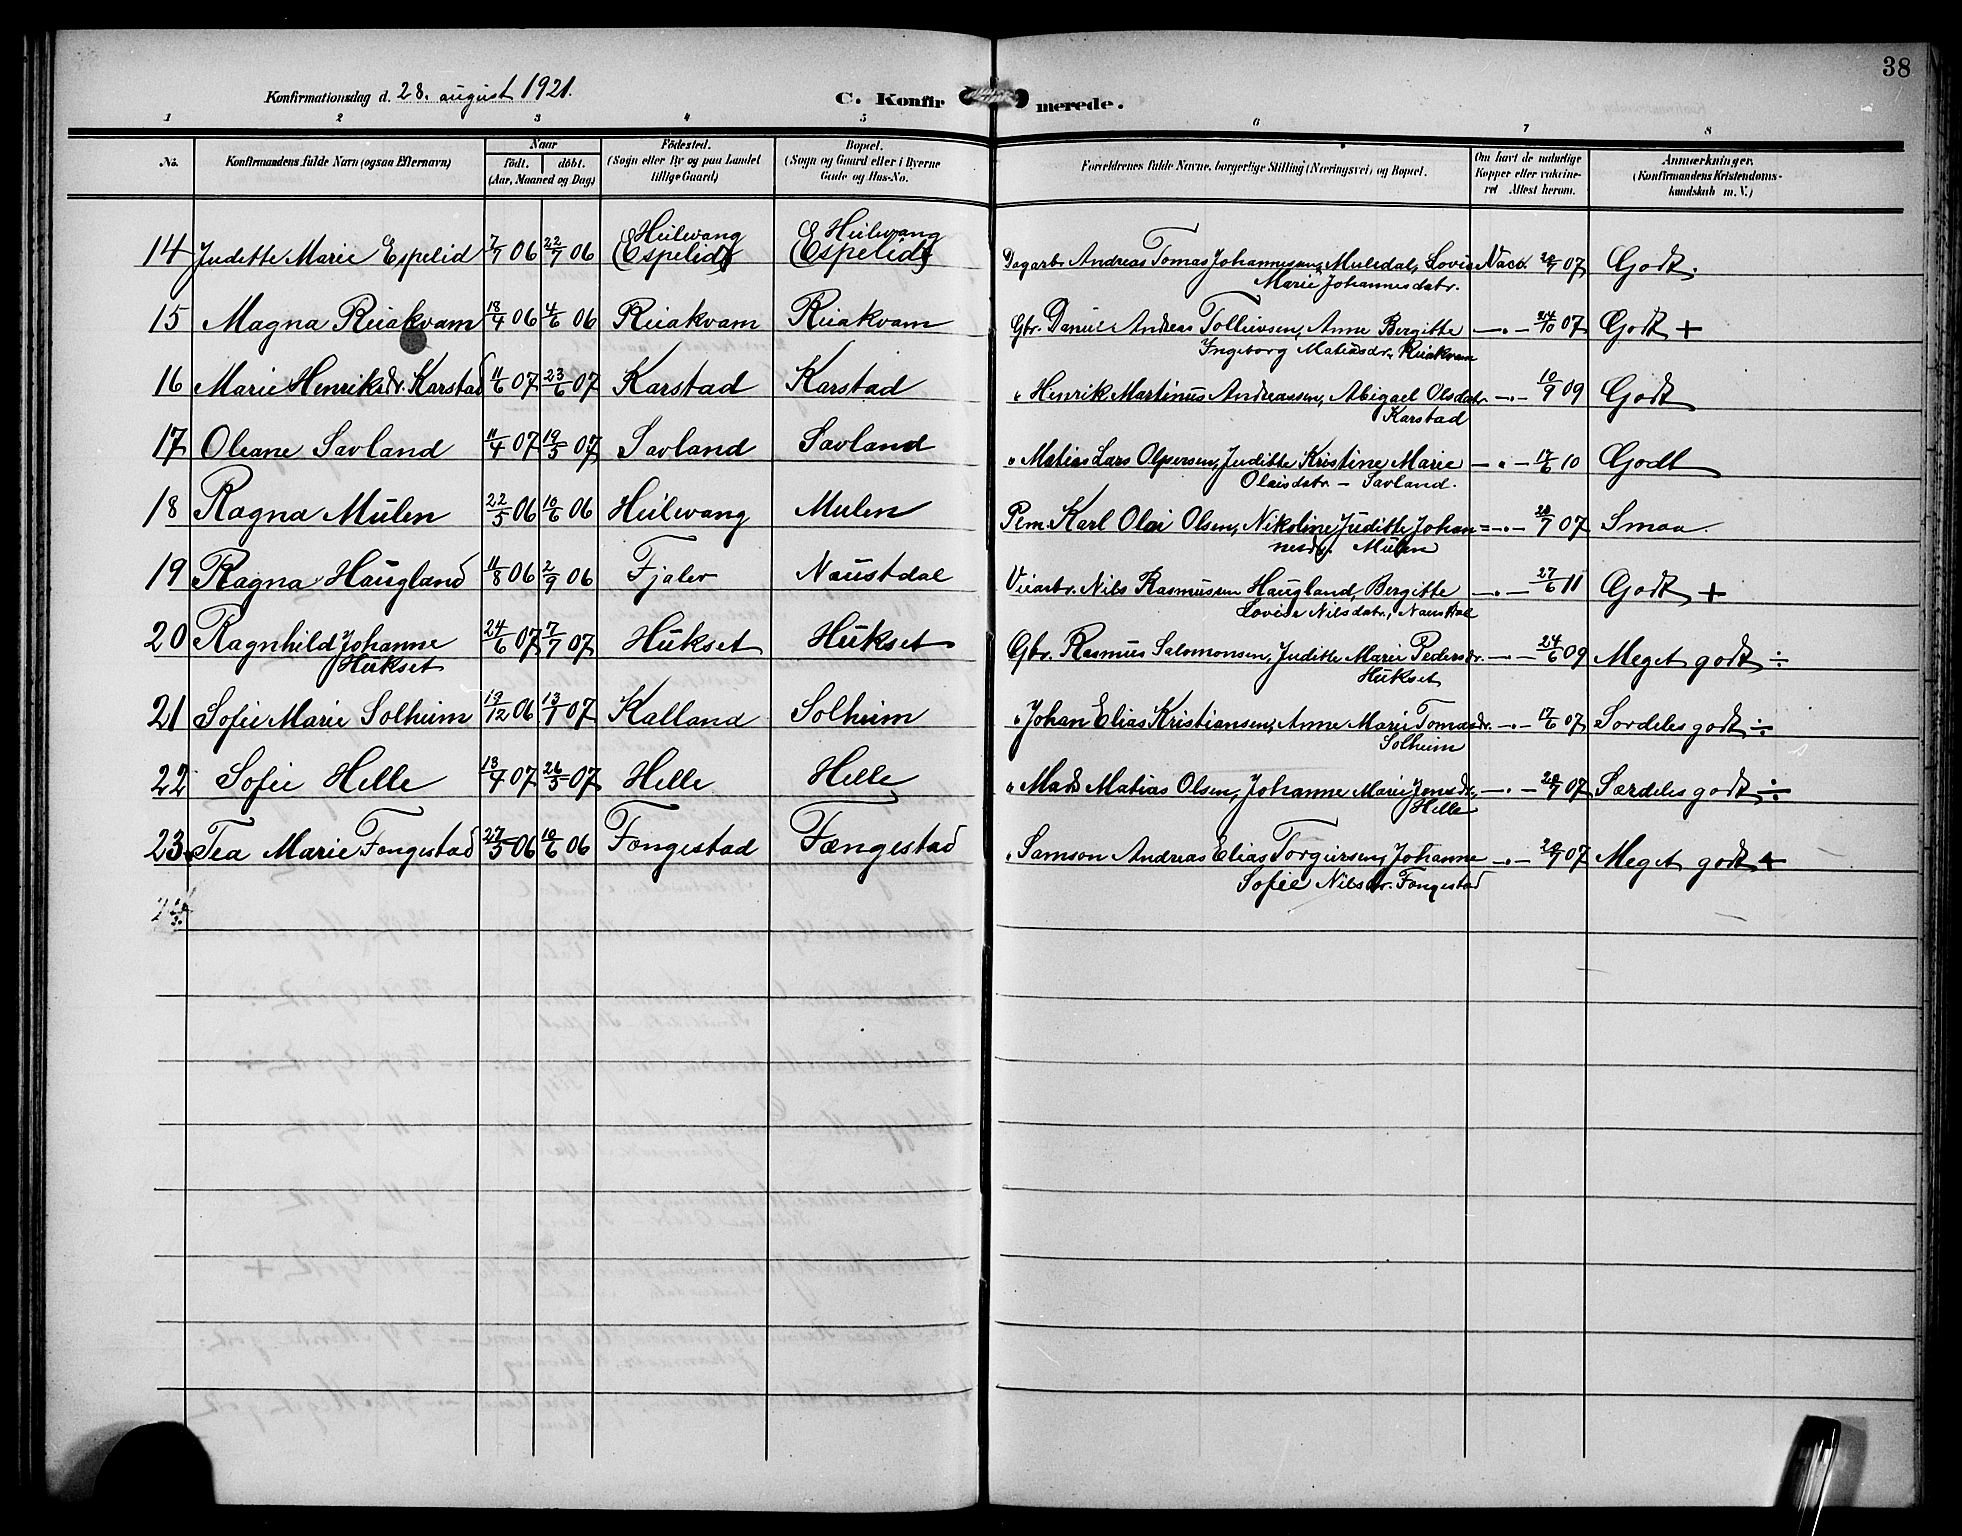 38
Konfirmationsdag d. 28. august 1921.
C. Konfirmerede.
1 2 3 4 5 6 7 8
No.
Konfirmandens fulde Navn (ogsaa Efternavn)
Naar
födt. döbt.
(Aar, Maaned og Dag)
Födested.
(Sogn eller By og paa Landet
tillige Gaard)
Bopæl.
(Sogn og Gaard eller i Byerne
Gade og Hus-No.
Forældrenes fulde Navne, borgerlige Stilling (Næringsvei) og Bopæl.
Om havt de naturlige
Kopper eller vakcine-
ret Attest herom.
Anmærkninger.
(Konfirmandens Kristendoms-
kundskab m. V.)
Heilevang Heilevang
14 Juditte Marie Espelid 7/7 06 22/7 06 (Espelid) (Espelid) Dagarb. Andreas Tomas Johannesen Mulsdal, Lovise Vacc. 07 Godt.
Marie Johannesdatr.
15 Magna Reiakvam 18/4 06 4/6 06 Reiakvam Reiakvam Gbr. Daniel Andreas Tollievsen, Anne Bergitte —"— 24/10 07 Godt +
Ingeborg Matiasdr. Reiakvam
16 Marie Henriksdr. Karstad 11/6 07 23/6 07 Karstad Karstad " Henrik Martinus Andreassen, Abigael Olsdatr. —"— 10/9 09 Godt
Karstad
17 Oleane Savland 11/4 07 19/5 07 Savland Savland " Matias Lars Olpersen, Juditte Kristine Marie —"— 17/6 10 Godt
Olaisdatr — Savland.
18 Ragna Mulen 22/5 06 10/6 06 Heilevang Mulen Pem. Karl Olai Olsen, Nikoline Juditte Johan= —"— 07 Smaa.
nesdr. Mulen
19 Ragna Haugland 11/8 06 2/9 06 Fjaler Naustdal Veiarb. Nils Rasmussen Haugland, Bergitte —"— 27/6 11 Godt +
Lovise Nilsdatr., Naustdal
20 Ragnhild Johanne 24/6 07 7/7 07 Hukset Hukset Gbr. Rasmus Salomonsen, Juditte Marie Pedersdr. —"— 24/6 09 Meget godt ÷
Hukset Hukset
21 Sofie Marie Solheim 19/12 06 13/1 07 Kalland Solheim " Johan Elias Kristiansen, Anne Marie Tomasdr. —"— 17/6 07 Særdeles godt ÷
Solheim
22 Sofie Helle 13/4 07 26/5 07 Helle Helle " Mads Matias Olsen, Johanne Marie Jensdr. —"— 07 Særdeles godt ÷
Helle
23 Tea Marie Fongestad 27/5 06 10/6 06 Fongestad Fængestad " Samson Andreas Elias Torgersen, Johanne —"— 07 Meget godt +
Sofie Nilsdr. Fongestad